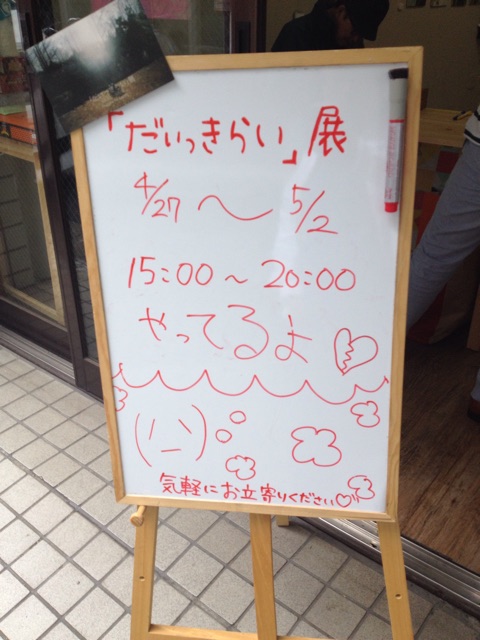 「だいっきらい」展
4/27 〜 5/2
15:00 〜 20:00
やってるよ
気軽にお立寄りください♡